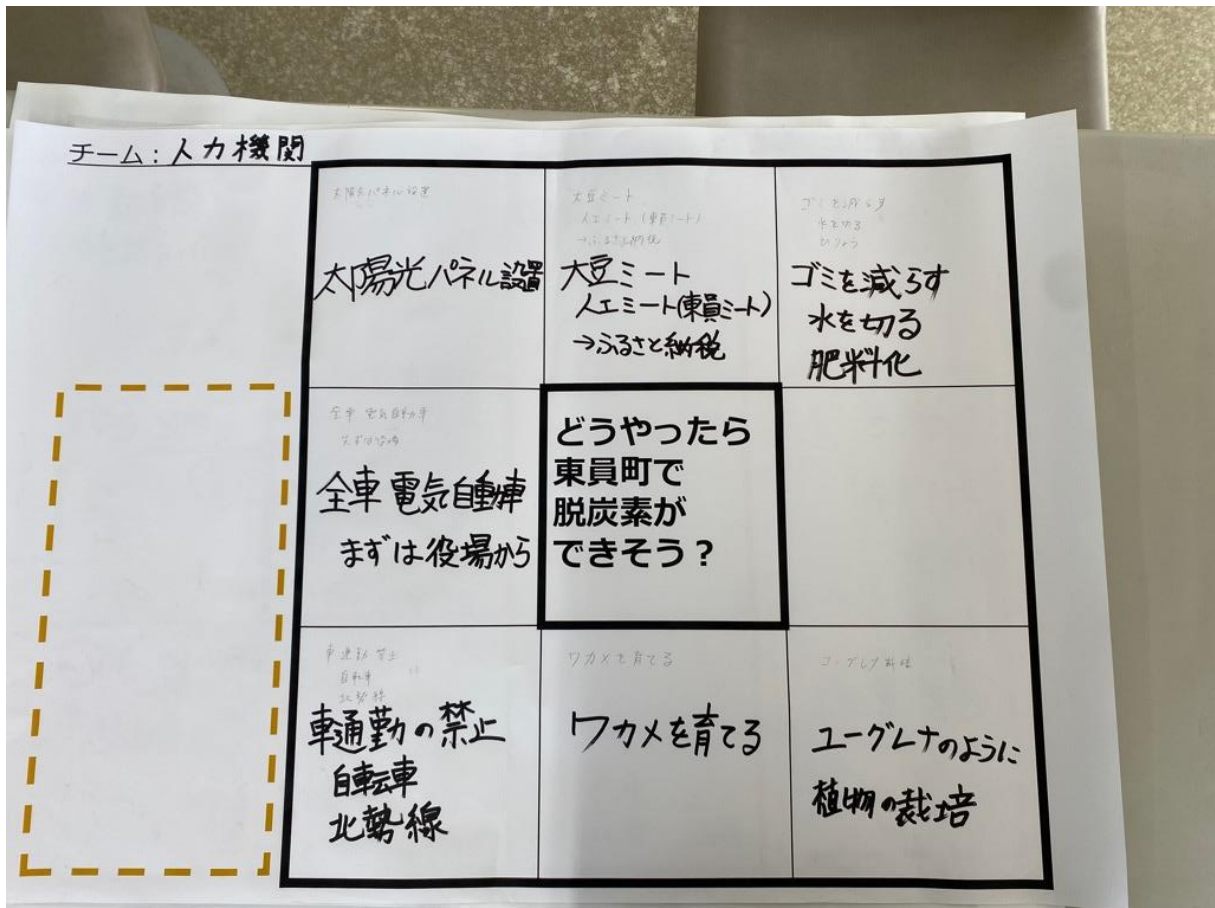 チーム：人力機関
太陽光パネル設置
太陽光パネル設置
大豆ミート
人工ミート(東員ミート)
→ふるさと納税
大豆ミート
人工ミート(東員ミート)
→ふるさと納税
ゴミを減らす
水を切る
ひりょう
ゴミを減らす
水を切る
肥料化
全車 電気自動車
まずは役場
全車 電気自動車
まずは役場から
どうやったら
東員町で
脱炭素が
できそう？
車通勤 禁止
自転車
北勢線
車通勤の禁止
自転車
北勢線
ワカメを育てる
ワカメを育てる
ユーグレナのように
植物の栽培